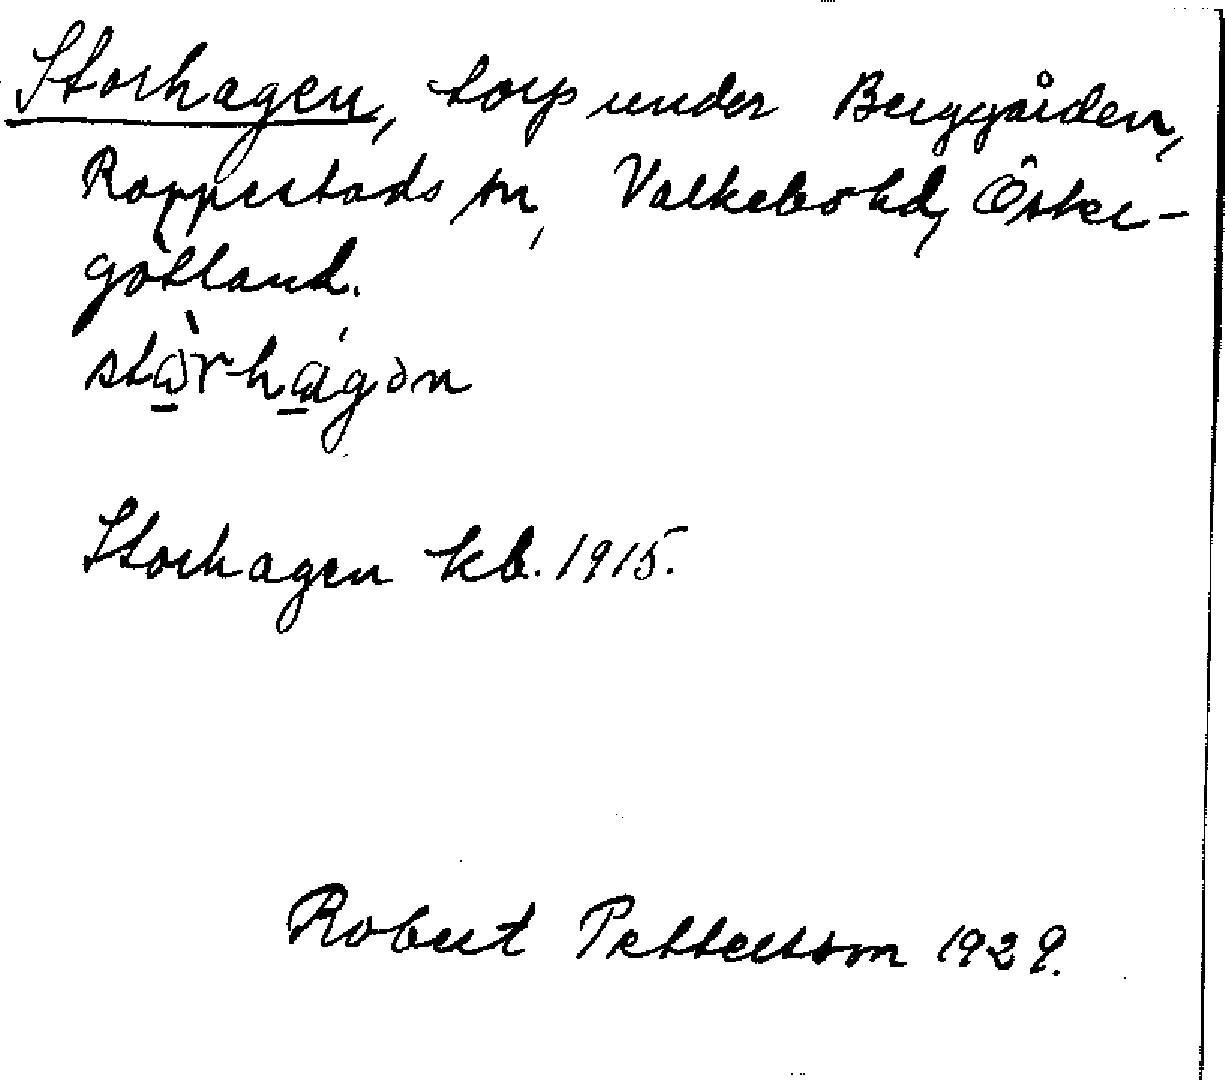 Storhagen, torp under Berggården,
Rappestads sn, Valkebo hd, Öster-
götland.
stòr-hágən
Storhagen kb. 1915.
Robert Pettersson 1929.